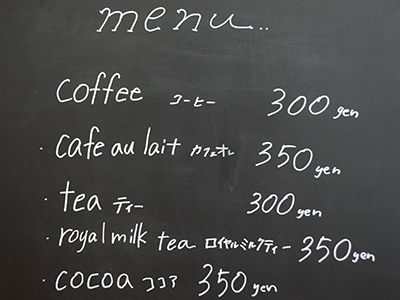 menu..
coffee コーヒー 300 yen
・cafe au lait カフェオレ 350 yen
・tea ティー 300 yen
・royal milk tea ロイヤルミルクティー 350 yen
・cocoa ココア 350 yen